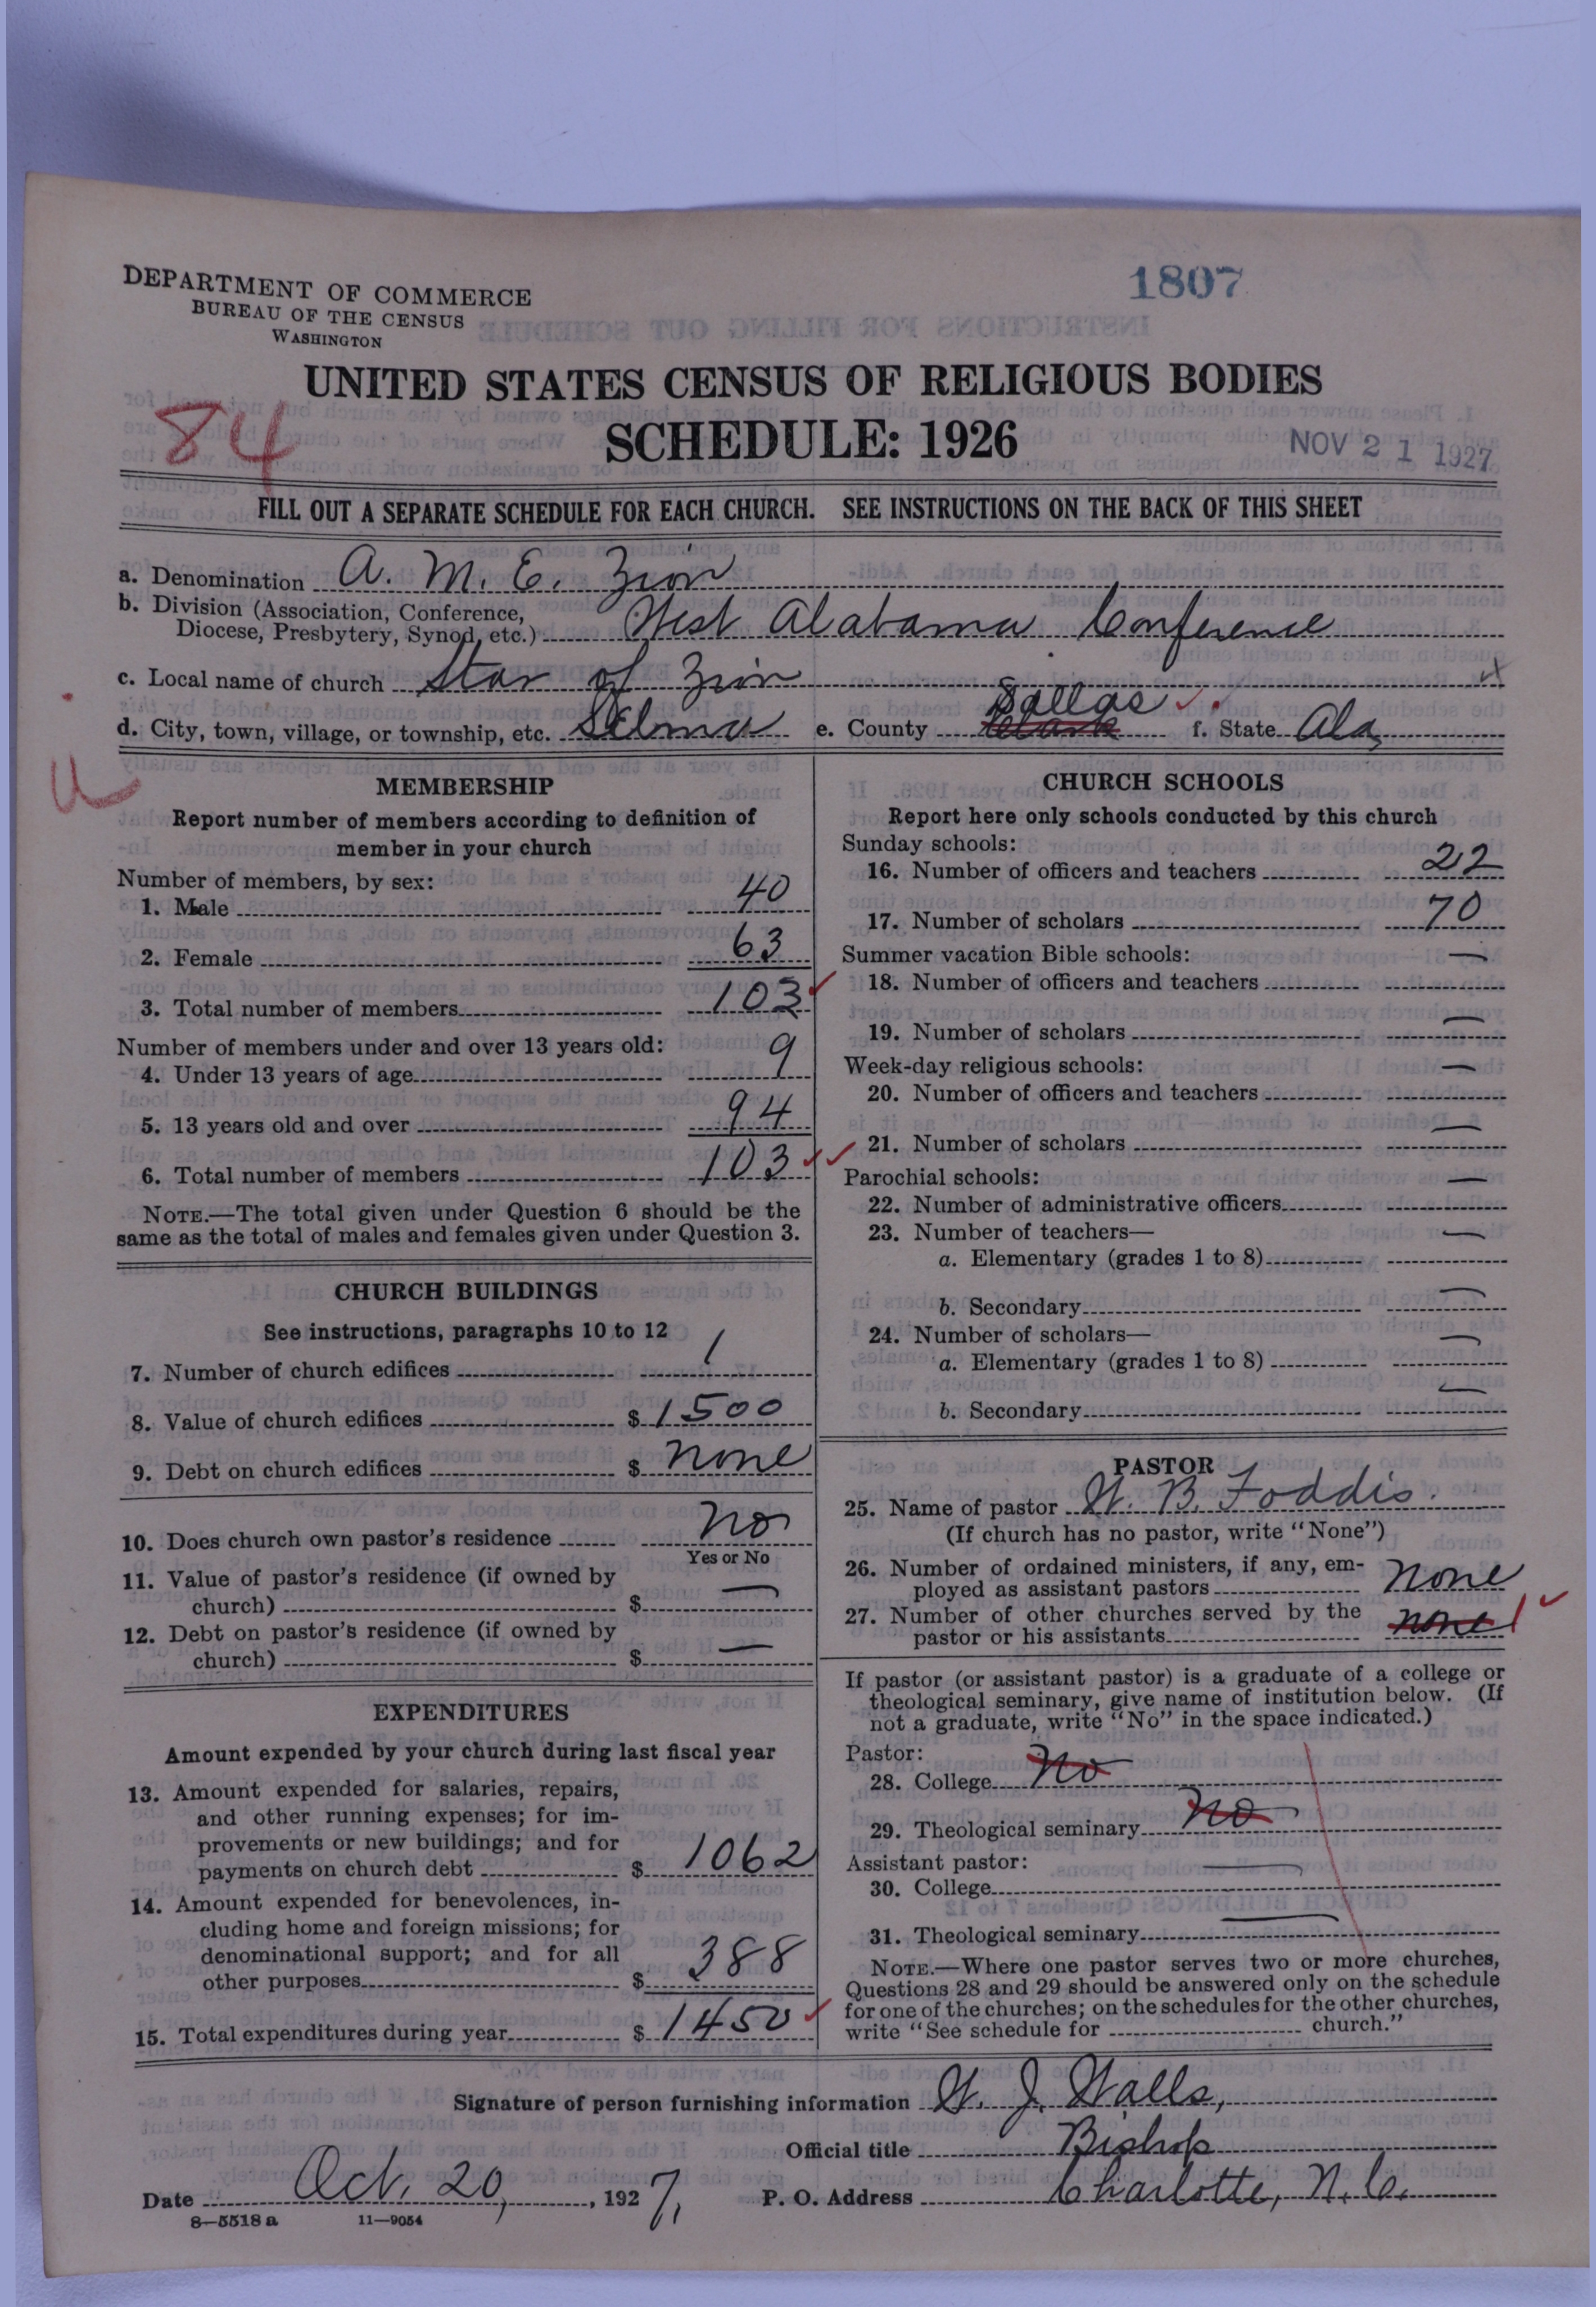 1807
DEPARTMENT OF COMMERCE
BUREAU OF THE CENSUS
WASHINGTON
UNITED STATES CENSUS OF RELIGIOUS BODIES
84
SCHEDULE: 1926
NOV 21 1927
FILL OUT A SEPARATE SCHEDULE FOR EACH CHURCH. SEE INSTRUCTIONS ON THE BACK OF THIS SHEET
a. Denomination A. M. E. Zion
b. Division (Association, Conference,
Diocese, Presbytery, Synod, etc.) West Alabama Conference
c. Local name of church Star of Zion
d. City, town, village, or township, etc. Selma e. County Clark Dallas f. State Ala.
u
MEMBERSHIP
Report number of members according to definition of
member in your church
Number of members, by sex:
1. Male 40
2. Female 63
3. Total number of members 103
Number of members under and over 13 years old:
4. Under 13 years of age 9
5. 13 years old and over 94
6. Total number of members 103
NOTE.—The total given under Question 6 should be the
same as the total of males and females given under Question 3.
CHURCH BUILDINGS
See instructions, paragraphs 10 to 12
7. Number of church edifices 1
8. Value of church edifices $ 1500
9. Debt on church edifices $ none
10. Does church own pastor's residence no
Yes or No
11. Value of pastor's residence (if owned by
church) $ —
12. Debt on pastor's residence (if owned by
church) $ —
EXPENDITURES
Amount expended by your church during last fiscal year
13. Amount expended for salaries, repairs,
and other running expenses; for im-
provements or new buildings; and for
payments on church debt $ 1062
14. Amount expended for benevolences, in-
cluding home and foreign missions; for
denominational support; and for all
other purposes $ 388
15. Total expenditures during year $ 1450
CHURCH SCHOOLS
Report here only schools conducted by this church
Sunday schools:
16. Number of officers and teachers 22
17. Number of scholars 70
Summer vacation Bible schools:
18. Number of officers and teachers —
19. Number of scholars —
Week-day religious schools:
20. Number of officers and teachers —
21. Number of scholars —
Parochial schools:
22. Number of administrative officers —
23. Number of teachers—
a. Elementary (grades 1 to 8) —
b. Secondary —
24. Number of scholars—
a. Elementary (grades 1 to 8) —
b. Secondary —
PASTOR
25. Name of pastor W. B. Foddis.
(If church has no pastor, write "None")
26. Number of ordained ministers, if any, em-
ployed as assistant pastors none
27. Number of other churches served by the
pastor or his assistants none 1
If pastor (or assistant pastor) is a graduate of a college or
theological seminary, give name of institution below. (If
not a graduate, write "No" in the space indicated.)
Pastor:
28. College No
29. Theological seminary No
Assistant pastor:
30. College —
31. Theological seminary —
NOTE.—Where one pastor serves two or more churches,
Questions 28 and 29 should be answered only on the schedule
for one of the churches; on the schedules for the other churches,
write "See schedule for church."
Signature of person furnishing information W. J. Walls,
Official title Bishop
Date Oct. 20, 1927, P. O. Address Charlotte, N. C.
8—5518 a 11—9054